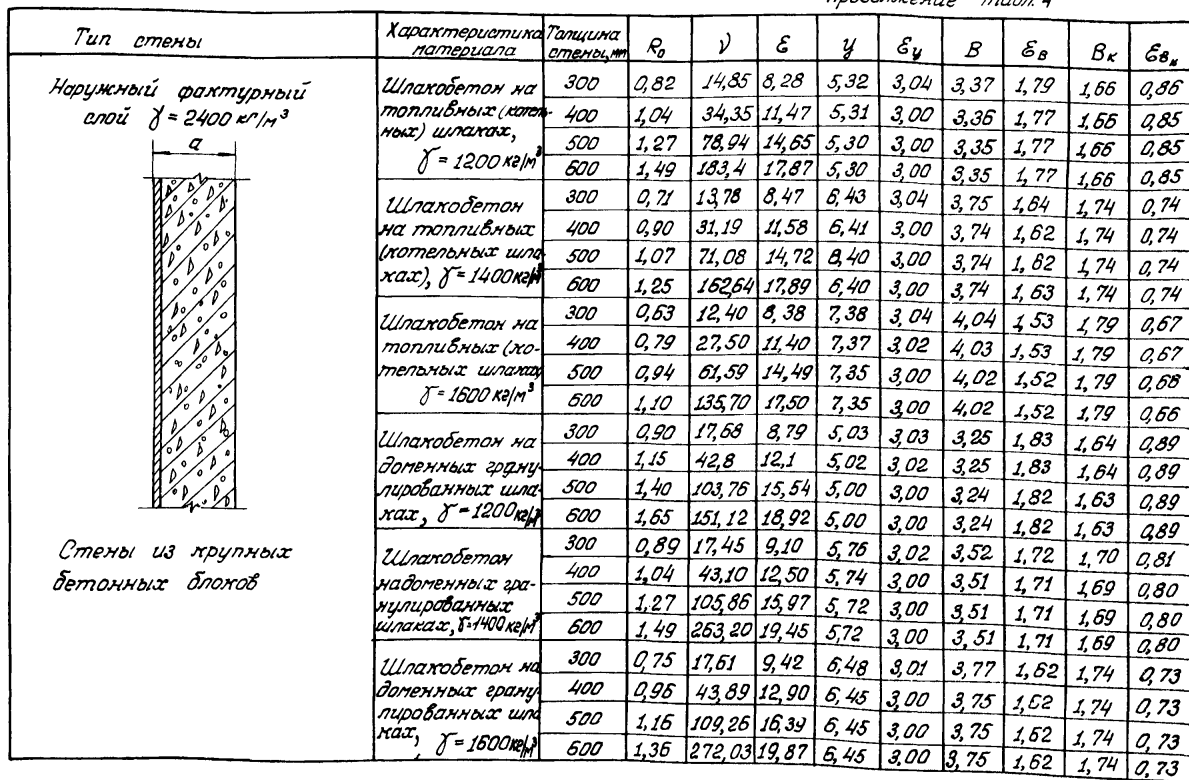 Продолжение табл. 4
Тип стены | Характеристика материала | Толщина стены, мм | R₀ | ν | ε | У | εу | В | εв | Вк | εвк
Наружный фактурный
слой γ = 2400 кг/м³
а
Стены из крупных
бетонных блоков
Шлакобетон на
топливных (котель-
ных) шлаках,
γ = 1200 кг/м³
300 | 0,82 | 14,85 | 8,28 | 5,32 | 3,04 | 3,37 | 1,79 | 1,66 | 0,86
400 | 1,04 | 34,35 | 11,47 | 5,31 | 3,00 | 3,36 | 1,77 | 1,66 | 0,85
500 | 1,27 | 78,94 | 14,65 | 5,30 | 3,00 | 3,35 | 1,77 | 1,66 | 0,85
600 | 1,49 | 183,4 | 17,87 | 5,30 | 3,00 | 3,35 | 1,77 | 1,66 | 0,85
Шлакобетон
на топливных
(котельных шла
ках), γ = 1400кг/м³
300 | 0,71 | 13,78 | 8,47 | 6,43 | 3,04 | 3,75 | 1,64 | 1,74 | 0,74
400 | 0,90 | 31,19 | 11,58 | 6,41 | 3,00 | 3,74 | 1,62 | 1,74 | 0,74
500 | 1,07 | 71,08 | 14,72 | 8,40 | 3,00 | 3,74 | 1,62 | 1,74 | 0,74
600 | 1,25 | 162,64 | 17,89 | 6,40 | 3,00 | 3,74 | 1,63 | 1,74 | 0,74
Шлакобетон на
топливных (ко-
тельных шлаках)
γ = 1600 кг/м³
300 | 0,63 | 12,40 | 8,38 | 7,38 | 3,04 | 4,04 | 1,53 | 1,79 | 0,67
400 | 0,79 | 27,50 | 11,40 | 7,37 | 3,02 | 4,03 | 1,53 | 1,79 | 0,67
500 | 0,94 | 61,59 | 14,49 | 7,35 | 3,00 | 4,02 | 1,52 | 1,79 | 0,68
600 | 1,10 | 135,70 | 17,50 | 7,35 | 3,00 | 4,02 | 1,52 | 1,79 | 0,66
Шлакобетон на
доменных грану-
лированных шла-
ках, γ = 1200кг/м³
300 | 0,90 | 17,68 | 8,79 | 5,03 | 3,03 | 3,25 | 1,83 | 1,64 | 0,89
400 | 1,15 | 42,8 | 12,1 | 5,02 | 3,02 | 3,25 | 1,83 | 1,64 | 0,89
500 | 1,40 | 103,76 | 15,54 | 5,00 | 3,00 | 3,24 | 1,82 | 1,63 | 0,89
600 | 1,65 | 151,12 | 18,92 | 5,00 | 3,00 | 3,24 | 1,82 | 1,63 | 0,89
Шлакобетон
надоменных гра-
нулированных
шлаках, γ=1400кг/м³
300 | 0,89 | 17,45 | 9,10 | 5,76 | 3,02 | 3,52 | 1,72 | 1,70 | 0,81
400 | 1,04 | 43,10 | 12,50 | 5,74 | 3,00 | 3,51 | 1,71 | 1,69 | 0,80
500 | 1,27 | 105,86 | 15,97 | 5,72 | 3,00 | 3,51 | 1,71 | 1,69 | 0,80
600 | 1,49 | 263,20 | 19,45 | 5,72 | 3,00 | 3,51 | 1,71 | 1,69 | 0,80
Шлакобетон на
доменных грану
лированных шла
ках, γ = 1600кг/м³
300 | 0,75 | 17,61 | 9,42 | 6,48 | 3,01 | 3,77 | 1,62 | 1,74 | 0,73
400 | 0,96 | 43,89 | 12,90 | 6,45 | 3,00 | 3,75 | 1,62 | 1,74 | 0,73
500 | 1,16 | 109,26 | 16,39 | 6,45 | 3,00 | 3,75 | 1,62 | 1,74 | 0,73
600 | 1,36 | 272,03 | 19,87 | 6,45 | 3,00 | 3,75 | 1,62 | 1,74 | 0,73